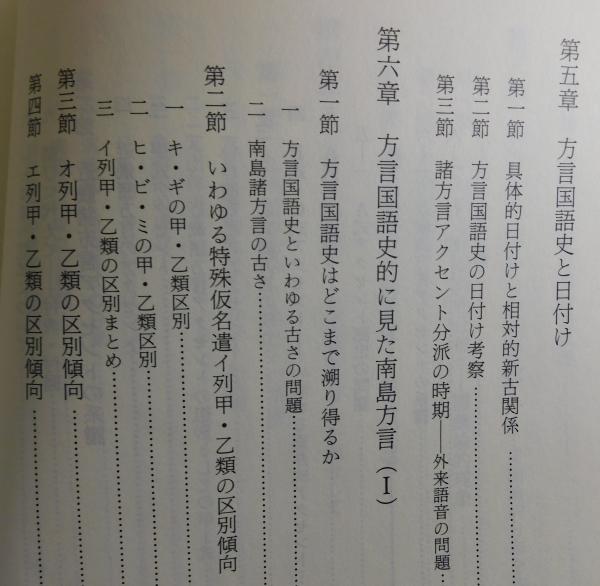 第五章 方言国語史と日付け
第一節 具体的日付けと相対的新古関係 ……………
第二節 方言国語史の日付け考察 ……………………
第三節 諸方言アクセント分派の時期――外来語音の問題…
第六章 方言国語史的に見た南島方言（Ⅰ）
第一節 方言国語史はどこまで溯り得るか
一 方言国語史といわゆる古さの問題……………
二 南島諸方言の古さ……………………………
第二節 いわゆる特殊仮名遣イ列甲・乙類の区別傾向
一 キ・ギの甲・乙類区別……………………
二 ヒ・ビ・ミの甲・乙類区別………………
三 イ列甲・乙類の区別まとめ………………
第三節 オ列甲・乙類の区別傾向……………
第四節 エ列甲・乙類の区別傾向……………